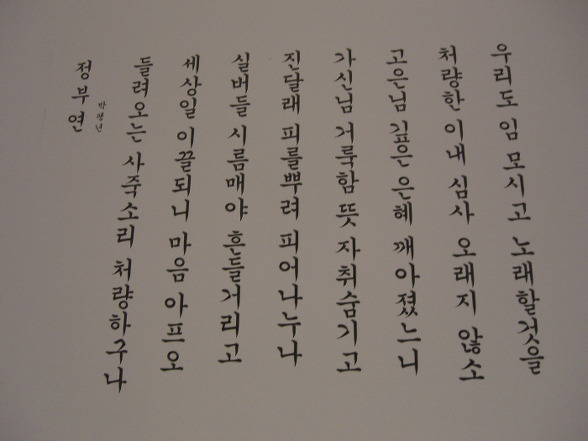 정부연
박팽년
들려오는 사죽소리 처량하구나
세상일 이끌되니 마음 아프오
실버들 시름매야 흔들거리고
진달래 피를뿌려 피어나누나
가신님 거룩함 뜻 자취숨기고
고은님 깊은 은혜 깨아졌느니
처량한 이내 심사 오래지 않소
우리도 임 모시고 노래할것을